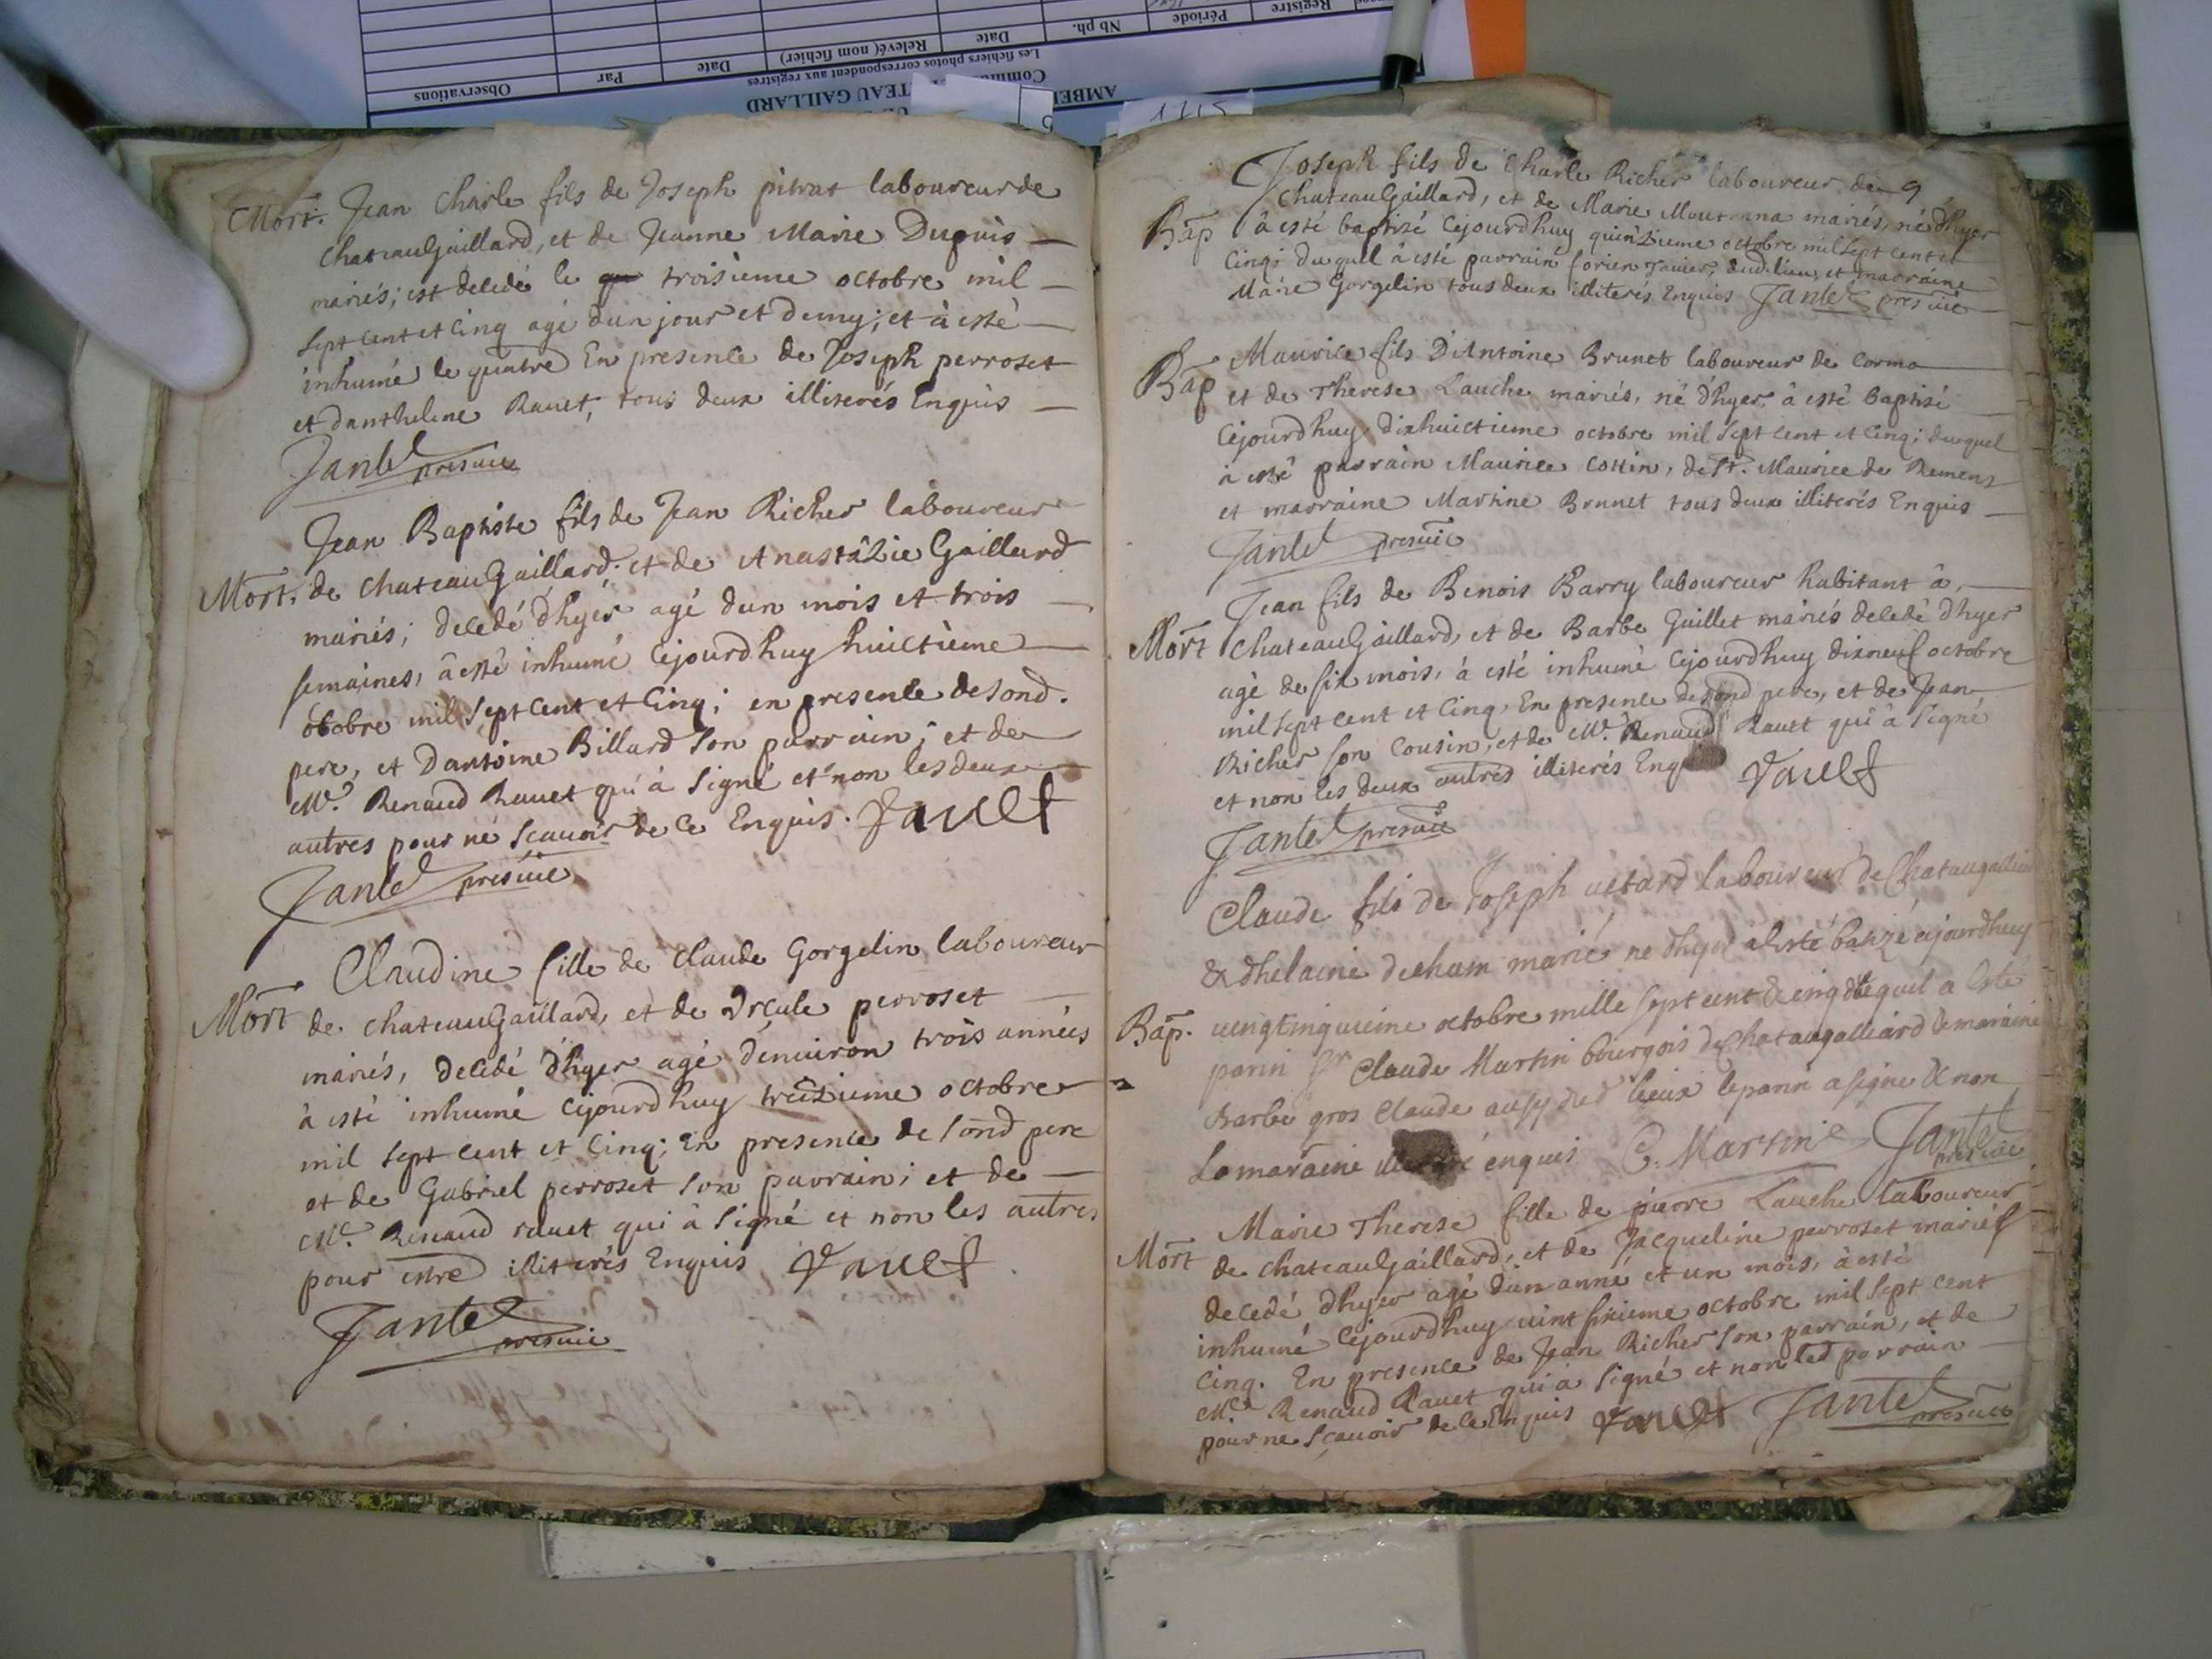 Observations
Par
Date
Relevé( nom fichier)
Date
Nb ph.
Période
Registre
Les fichiers photos correspondent aux registres
TEAU GAILLARD
1715
Mort. Jean Charle fils de Joseph pitrat laboureur de
chateauGaillard, et de Jeanne Marie Dupuis
mariés; est decedé le troisieme octobre mil
sept cent et cinq agé dun jour et demy; et à esté
inhumé le quatre En presence de Joseph perroset
et danthelme Rauet, tous deux illiterés Enquis
Jantet presvic
Jean Baptiste fils de Jean Richer laboureur
Mort. de chateauGaillard. et de Anastazie Gaillard
mariés; decedé d'hyer agé dun mois et trois
semaines, à esté inhumé cejourdhuy huictieme
octobre mil sept cent et cinq; en presence de sond.
pere, et Dantoine Billard son parrain; et de
Mr. Renaud Rauet qui à signé et non les deux
autres pour ne scauoir de ce Enquis. Rauet
Jantet presvic
Claudine fille de Claude Gorgelin laboureur
Mort de chateauGaillard, et de Vrcule perroset
mariés, decedé d'hyer agé d'enuiron trois années
à esté inhumé cejourdhuy treizieme octobre
mil sept cent et cinq; En presence de sond pere
et de Gabriel perroset son parrain; et de
Mr. Renaud rauet qui à signé et non les autres
pour estre illiterés Enquis Rauet
Jantet presvic
Joseph fils de Charle Richer laboureur de 9
chateauGaillard, et de Marie mariés, né d'hyer
Bap à esté baptizé cejourdhuy quinzieme octobre mil sept cent et
cinq; duquel à esté parrain dud. lieu, et marraine
Marie Gorgelin tous deux illiterés Enquis Jantet presvic
Maurice fils D'Antoine Brunet laboureur de Cormo
Bap et de Therese Lauche mariés, né d'hyer, à esté Baptisé
cejourdhuy dixhuictieme octobre mil sept cent et cinq; duquel
à esté parrain Maurice Cottin, de St. Maurice de Remens
et marraine Martine Brunet tous deux illiterés Enquis
Jantet presvic
Jean fils de Benois Barry laboureur habitant à
Mort chateauGaillard, et de Barbe Guillet mariés decedé d'hyer
agé de six mois, à esté inhumé cejourdhuy dixneuf octobre
mil sept cent et cinq, En presence de sond pere, et de Jean
Richer son cousin, et de Mr. Renaud Rauet qui à signé
et non les deux autres illiterés Rauet
Jantet presvic
Claude fils de Joseph laboureur de
& dhelaine marié ne dhyer a esté cejourdhuy
Bap. octobre mille sept cent & cinq duquel a esté
parin Sr Claude Martin bourgois de & maraine
Barbe gros Claude ausy dud lieux le parin a signe & non
la maraine enquis C. Martin Jantet presvic
Marie Therese fille de pierre Lauche laboureur
Mort de chateauGaillard, et de Jacqueline perroset mariés
decedé d'hyer agé d'un anné et un mois, à esté
inhumé cejourdhuy uint sixieme octobre mil sept cent
cinq. En presence de Jean Richer son parrain, et de
Mr. Renaud Rauet qui à signé et non led parrain
pour ne scauoir de ce Enquis Rauet Jantet presvic